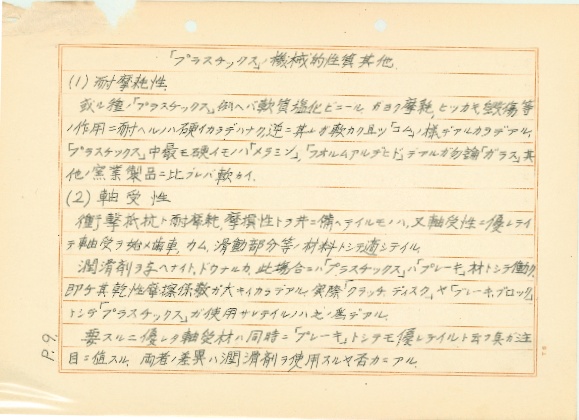 「プラスチックス」ノ機械的性質其他
(1) 耐摩耗性
或ル種ノ「プラスチックス」例ヘバ軟質塩化ビニールガヨク摩耗,ヒッカキ毀傷等
ノ作用ニ耐ヘルノハ硬イカラデハナク,逆ニ其レガ軟カク且ツ「ゴム」ノ様デアルカラデアル.
「プラスチックス」中最モ硬イモノハ「メラミン」,「フオルムアルデヒド」デアルガ勿論「ガラス」其
他ノ窯業製品ニ比ブレバ軟カイ.
(2) 軸受性
衝撃抵抗ト耐摩耗,摩損性トヲ共ニ備ヘテイルモノハ,又軸受性ニ優レテイ
テ軸受ヲ始メ歯車,カム,滑動部分等ノ材料トシテ適シテイル.
潤滑剤ヲ与ヘナイト,ドウナルカ,此場合ニハ「プラスチックス」ハ「ブレーキ」材トシテ働ク,
即チ其乾性摩擦係数ガ大キイカラデアル.実際「クラッチ,ディスク」ヤ「ブレーキ,ブロック」
トシテ「プラスチックス」ガ使用サレテイルノハ之ノ為デアル.
要スルニ優レタ軸受材ハ同時ニ「ブレーキ」トシテモ優レテイルト云フ点ガ注
目ニ値スル.両者ノ差異ハ潤滑剤ヲ使用スルヤ否カニアル.
P.9.